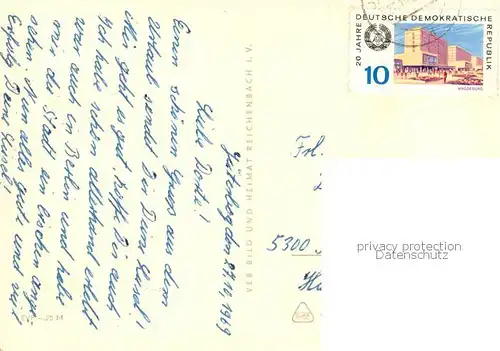 Jüterbog, den 27.10.1969
Liebe Dorit!
Einen schönen Gruß aus dem
Urlaub sendet Dir Deine Liesel!
Mir geht es gut, hoffe Dir auch
Ich habe schon allerhand erlebt
war auch in Berlin und habe
mir die Stadt ein bischen ange-
sehen. Nun alles gute und viel
Erfolg Deine Liesel!
EVP –,25 M
VEB BILD UND HEIMAT REICHENBACH I. V.
20 JAHRE DEUTSCHE DEMOKRATISCHE REPUBLIK
10
MAGDEBURG
Frl.
5300
privacy protection
Datenschutz